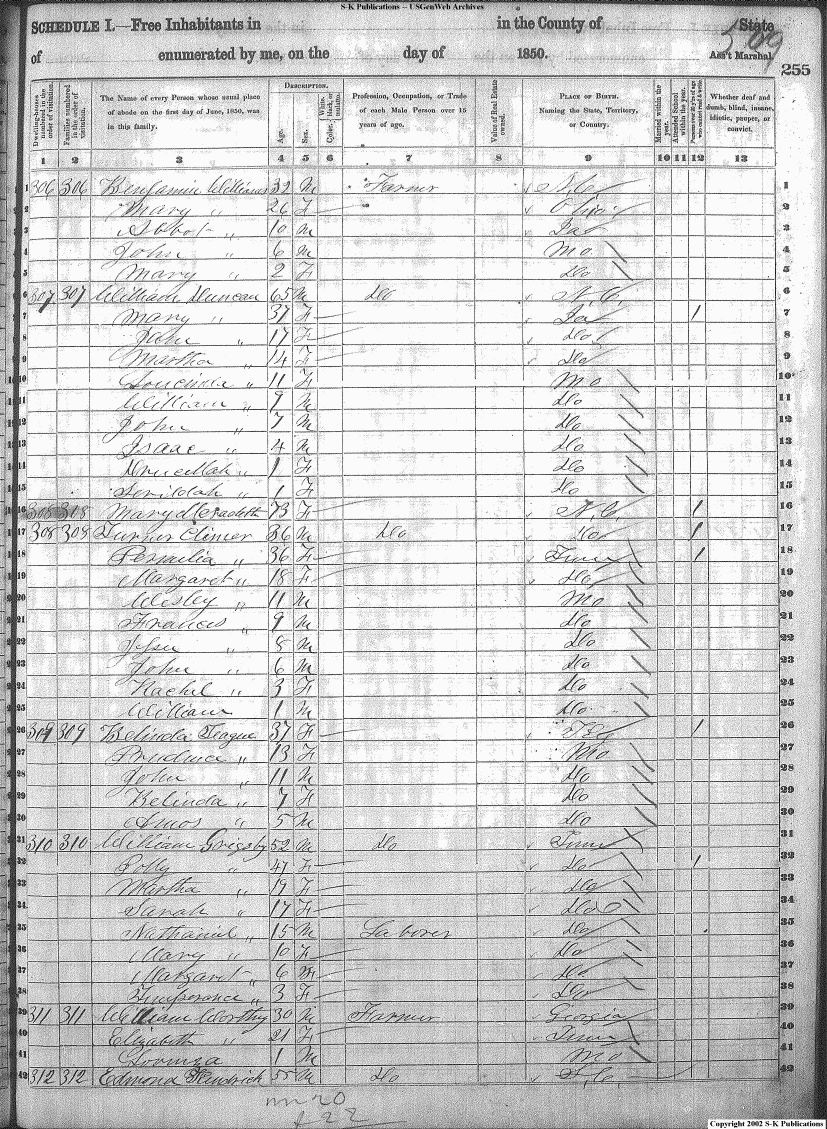 S-K Publications -- USGenWeb Archives
SCHEDULE I.—Free Inhabitants in in the County of State
of enumerated by me, on the day of 1850. Ass't Marshal. 509
255
Dwelling-houses numbered in the order of visitation. Families numbered in the order of visitation. The Name of every Person whose usual place of abode on the first day of June, 1850, was in this family. DESCRIPTION. Age. Sex. Color, White, black, or mulatto. Profession, Occupation, or Trade of each Male Person over 15 years of age. Value of Real Estate owned. PLACE OF BIRTH. Naming the State, Territory, or Country. Married within the year. Attended School within the year. Persons over 20 y'rs of age who cannot read & write. Whether deaf and dumb, blind, insane, idiotic, pauper, or convict.
1 2 3 4 5 6 7 8 9 10 11 12 13
1 306 306 Benjamin Williams 32 M Farmer N.C. 1
2 Mary " 26 F Ohio 2
3 Abbot " 10 M Ia 3
4 John " 6 M Mo 4
5 Mary " 2 F Do 5
6 307 307 William Duncan 65 M Do N.C. 6
7 Mary " 37 F Ia 1 7
8 " 17 F Do 8
9 Martha " 14 F Do 9
10 " 11 F Mo 10
11 William " 9 M Do 11
12 John " 7 M Do 12
13 Isaac " 4 M Do 13
14 Drucillah " 1 F Do 14
15 " 1 F Do 15
16 308 308 Mary 73 F N.C. 1 16
17 308 308 Turner Climer 36 M Do Do 1 17
18 Permelia " 36 F Tenn 1 18
19 Margaret " 18 F Do 19
20 Wesley " 11 M Mo 20
21 Francis " 9 M Do 21
22 Jesse " 8 M Do 22
23 John " 6 M Do 23
24 Rachel " 3 F Do 24
25 William 1 M Do 25
26 309 309 Belinda Teague 37 F 1 26
27 Prudence " 13 F Mo 27
28 John " 11 M Do 28
29 Belinda " 7 F Do 29
30 Amos " 5 M Do 30
31 310 310 William Grigsby 52 M Do Tenn 31
32 Polly " 47 F Do 1 32
33 Martha " 19 F Do 33
34 Sarah " 17 F Do 34
35 Nathaniel " 15 M Laborer Do 35
36 Mary " 10 F Do 36
37 Margaret " 6 Do 37
38 Temperance " 3 F Do 38
39 311 311 William Worthy 30 M Farmer Georgia 39
40 Elizabeth " 21 F Tenn 40
41 1 M Mo 41
42 312 312 Edmond 55 M Do 42
m 20
f 22
Copyright 2002 S-K Publications